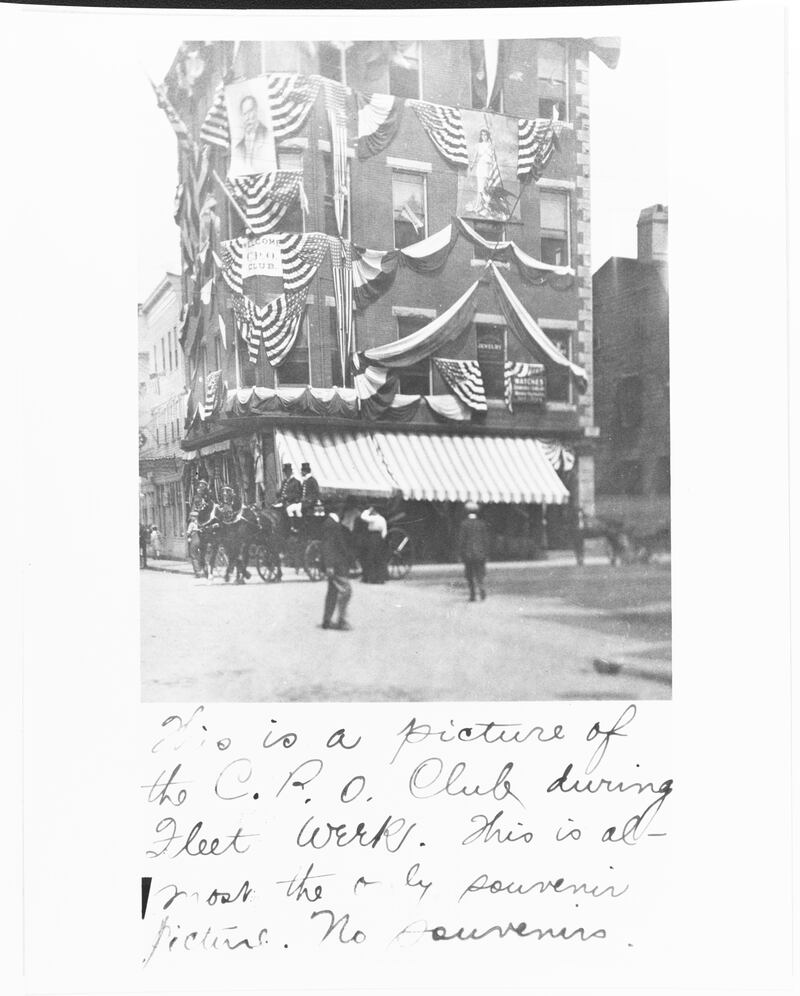 WELCOME
C.P.O.
CLUB.
JEWELRY
WATCHES
This is a picture of
the C. P. O. Club during
Fleet Week. This is al-
most the only souvenir
picture. No souvenirs.